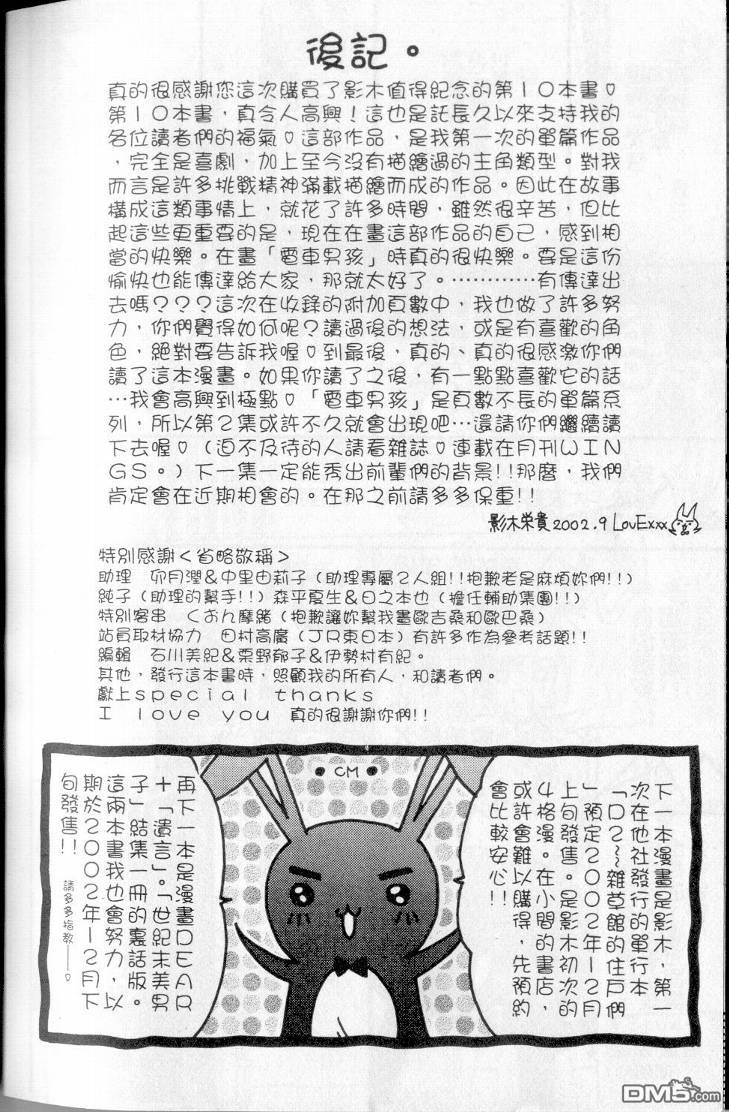 後記。
真的很感謝您這次購買了影木值得紀念的第１０本書♡
第１０本書，真令人高興！這也是託長久以來支持我的
各位讀者們的福氣♡這部作品，是我第一次的單篇作品
，完全是喜劇，加上至今沒有描繪過的主角類型。對我
而言是許多挑戰精神滿載描繪而成的作品。因此在故事
構成這類事情上，就花了許多時間，雖然很辛苦，但比
起這些更重要的是，現在在畫這部作品的自己，感到相
當的快樂。在畫「電車男孩」時真的很快樂。要是這份
愉快也能傳達給大家，那就太好了。…………有傳達出
去嗎？？？這次在收錄的附加頁數中，我也做了許多努
力，你們覺得如何呢？讀過後的想法，或是有喜歡的角
色，絕對要告訴我喔♡到最後，真的、真的很感激你們
讀了這本漫畫。如果你讀了之後，有一點點喜歡它的話
…我會高興到極點♡「電車男孩」是頁數不長的單篇系
列，所以第２集或許不久就會出現吧…還請你們繼續讀
下去喔♡（迫不及待的人請看雜誌♡連載在月刊ＷＩＮ
ＧＳ。）下一集一定能秀出前輩們的背景！！那麼，我們
肯定會在近期相會的。在那之前請多多保重！！
影木栄貴2002.9 LovExxx
特別感謝＜省略敬稱＞
助理　卯月潤＆中里由莉子（助理專屬２人組！！抱歉老是麻煩妳們！！）
純子（助理的幫手！！）森平夏生＆日之本也（擔任輔助集團！！）
特別客串　くおん摩緒（抱歉讓妳幫我畫歐吉桑和歐巴桑）
站員取材協力　田村高廣（ＪＲ東日本）有許多作為參考話題！！
編輯　石川美紀＆栗野郁子＆伊勢村有紀。
其他，發行這本書時，照顧我的所有人，和讀者們。
獻上ｓｐｅｃｉａｌ　ｔｈａｎｋｓ
Ｉ　ｌｏｖｅ　ｙｏｕ　真的很謝謝你們！！
・CM・
下一本漫畫是影木，第一
次在他社發行的單行本
「Ｄ２～雜草館的住戶們
」預定２００２年１２月
上旬發售。是影木初次的
４格漫。在小間的書店，
或許會難以購得，先預約
會比較安心！！
再下一本是漫畫ＤＥＡＲ
＋「遺言」。「世紀末美男
子」結集一冊的裏話版。
這兩本書我也會努力，以
期於２００２年１２月下
旬發售！！
請多多指教——♡
DM5.com